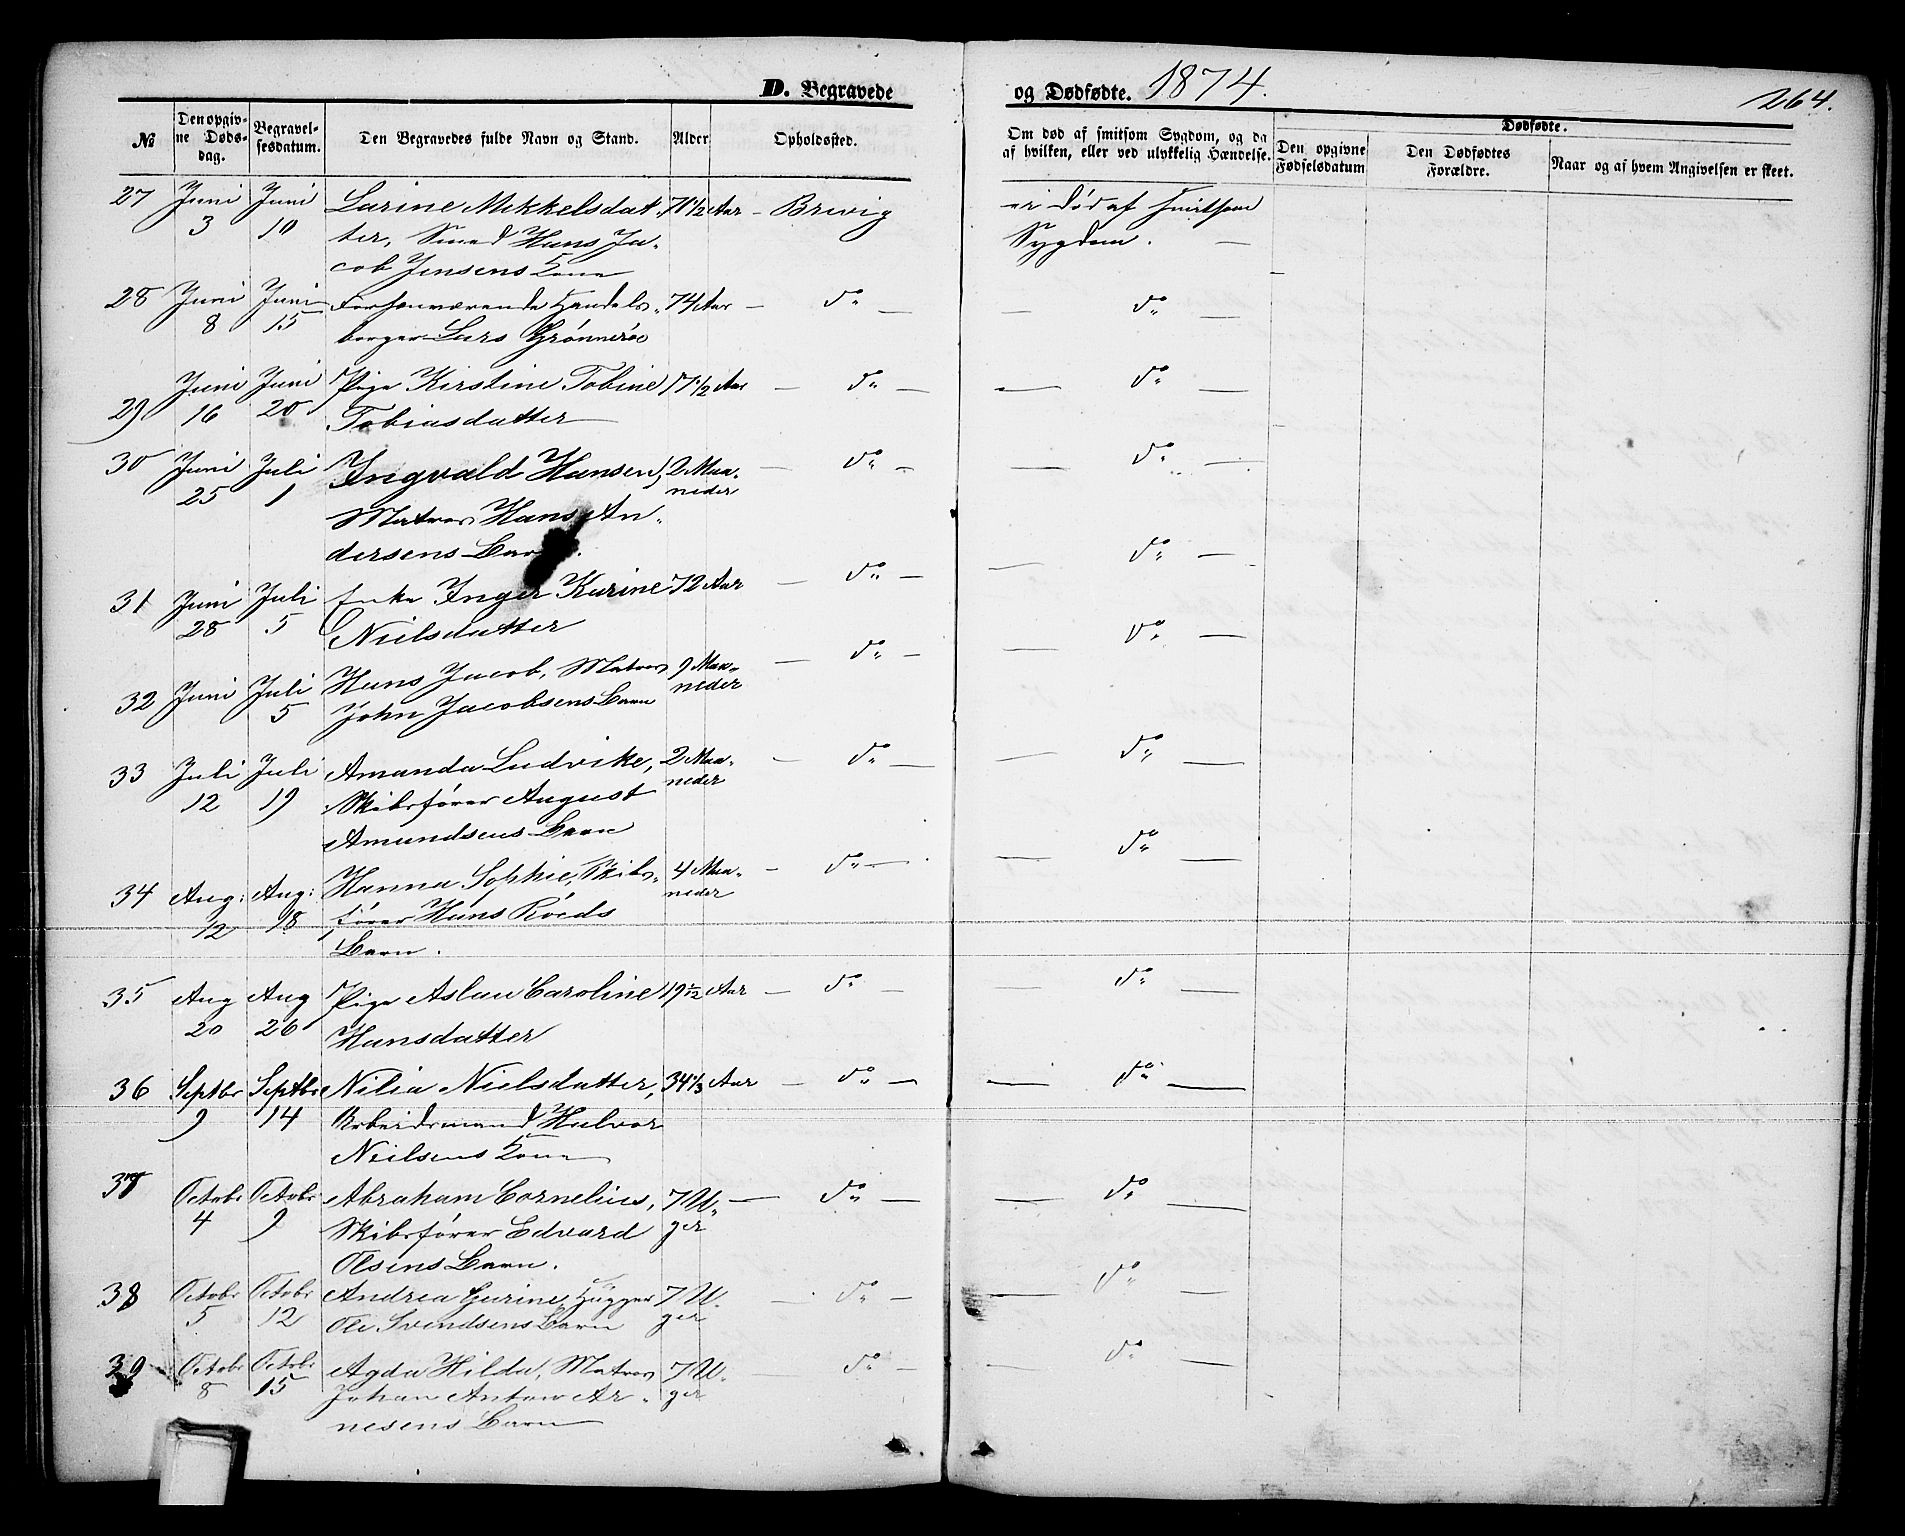 D. Begravede og Dødfødte. 1874. 264.
№ Den opgivne Dødsdag. Begravelsesdatum. Den Begravedes fulde Navn og Stand. Alder Opholdssted. Om død af smitsom Sygdom, og da af hvilken, eller ved ulykkelig Hændelse. Dødfødte. Den opgivne Fødselsdatum Den Dødfødtes Forældre. Naar og af hvem Angivelsen er skeet.
27 Juni Juni Larine Mikkelsdat- 71/2 Aar – Brevig – død af smitsom
3 10 ter, Smed Hans Ja- Sygdom. —
cob Jensens Kone
28 Juni Juni Forhenværende Handels- 74 Aar – do — — do —
8 15 borger Lars Grønneröe
29 Juni Juni Pige Kirstine Tobine 17 1/2 Aar — do — — do —
16 20 Tobiasdatter
30 Juni Juli Ingvald Hansen, 2 Maa- — do — — do —
25 1 Matros Hans An- neder
dersens Barn.
31 Juni Juli Enke Inger Karine 72 Aar — do — — do —
28 5 Nielsdatter
32 Juni Juli Hans Jacob, Matros 9 Maa- — do — — do —
5 John Jacobsens Barn neder
33 Juli Juli Amanda Ludvike, 2 Maa- — do — — do —
12 19 Skibsfører August neder
Amundsens Barn
34 Aug: Aug: Hanna Sophie, Skibs- 4 Maa- — do — — do —
12 18 fører Hans Röeds neder
Barn.
35 Aug Aug Pige Aslau Caroline 19 1/2 Aar — do — — do —
20 26 Hansdatter
36 Septbr Septbr Nilia Nielsdatter, 34 1/3 Aar — do — — do —
9 14 Arbeidsmand Halvor
Nielsens Kone
37 Octobr Octobr Abraham Cornelius, 7 U- — do — — do —
4 9 Skibsfører Edvard ger
Olsens Barn.
38 Octobr Octobr Andrea Gurine, Hugger 7 U- — do — — do —
5 12 Ole Svendsens Barn ger
39 Octobr Octobr Agda Hilda, Matros 7 U- — do — — do —
8 15 Johan Anton Ar- ger
nesens Barn